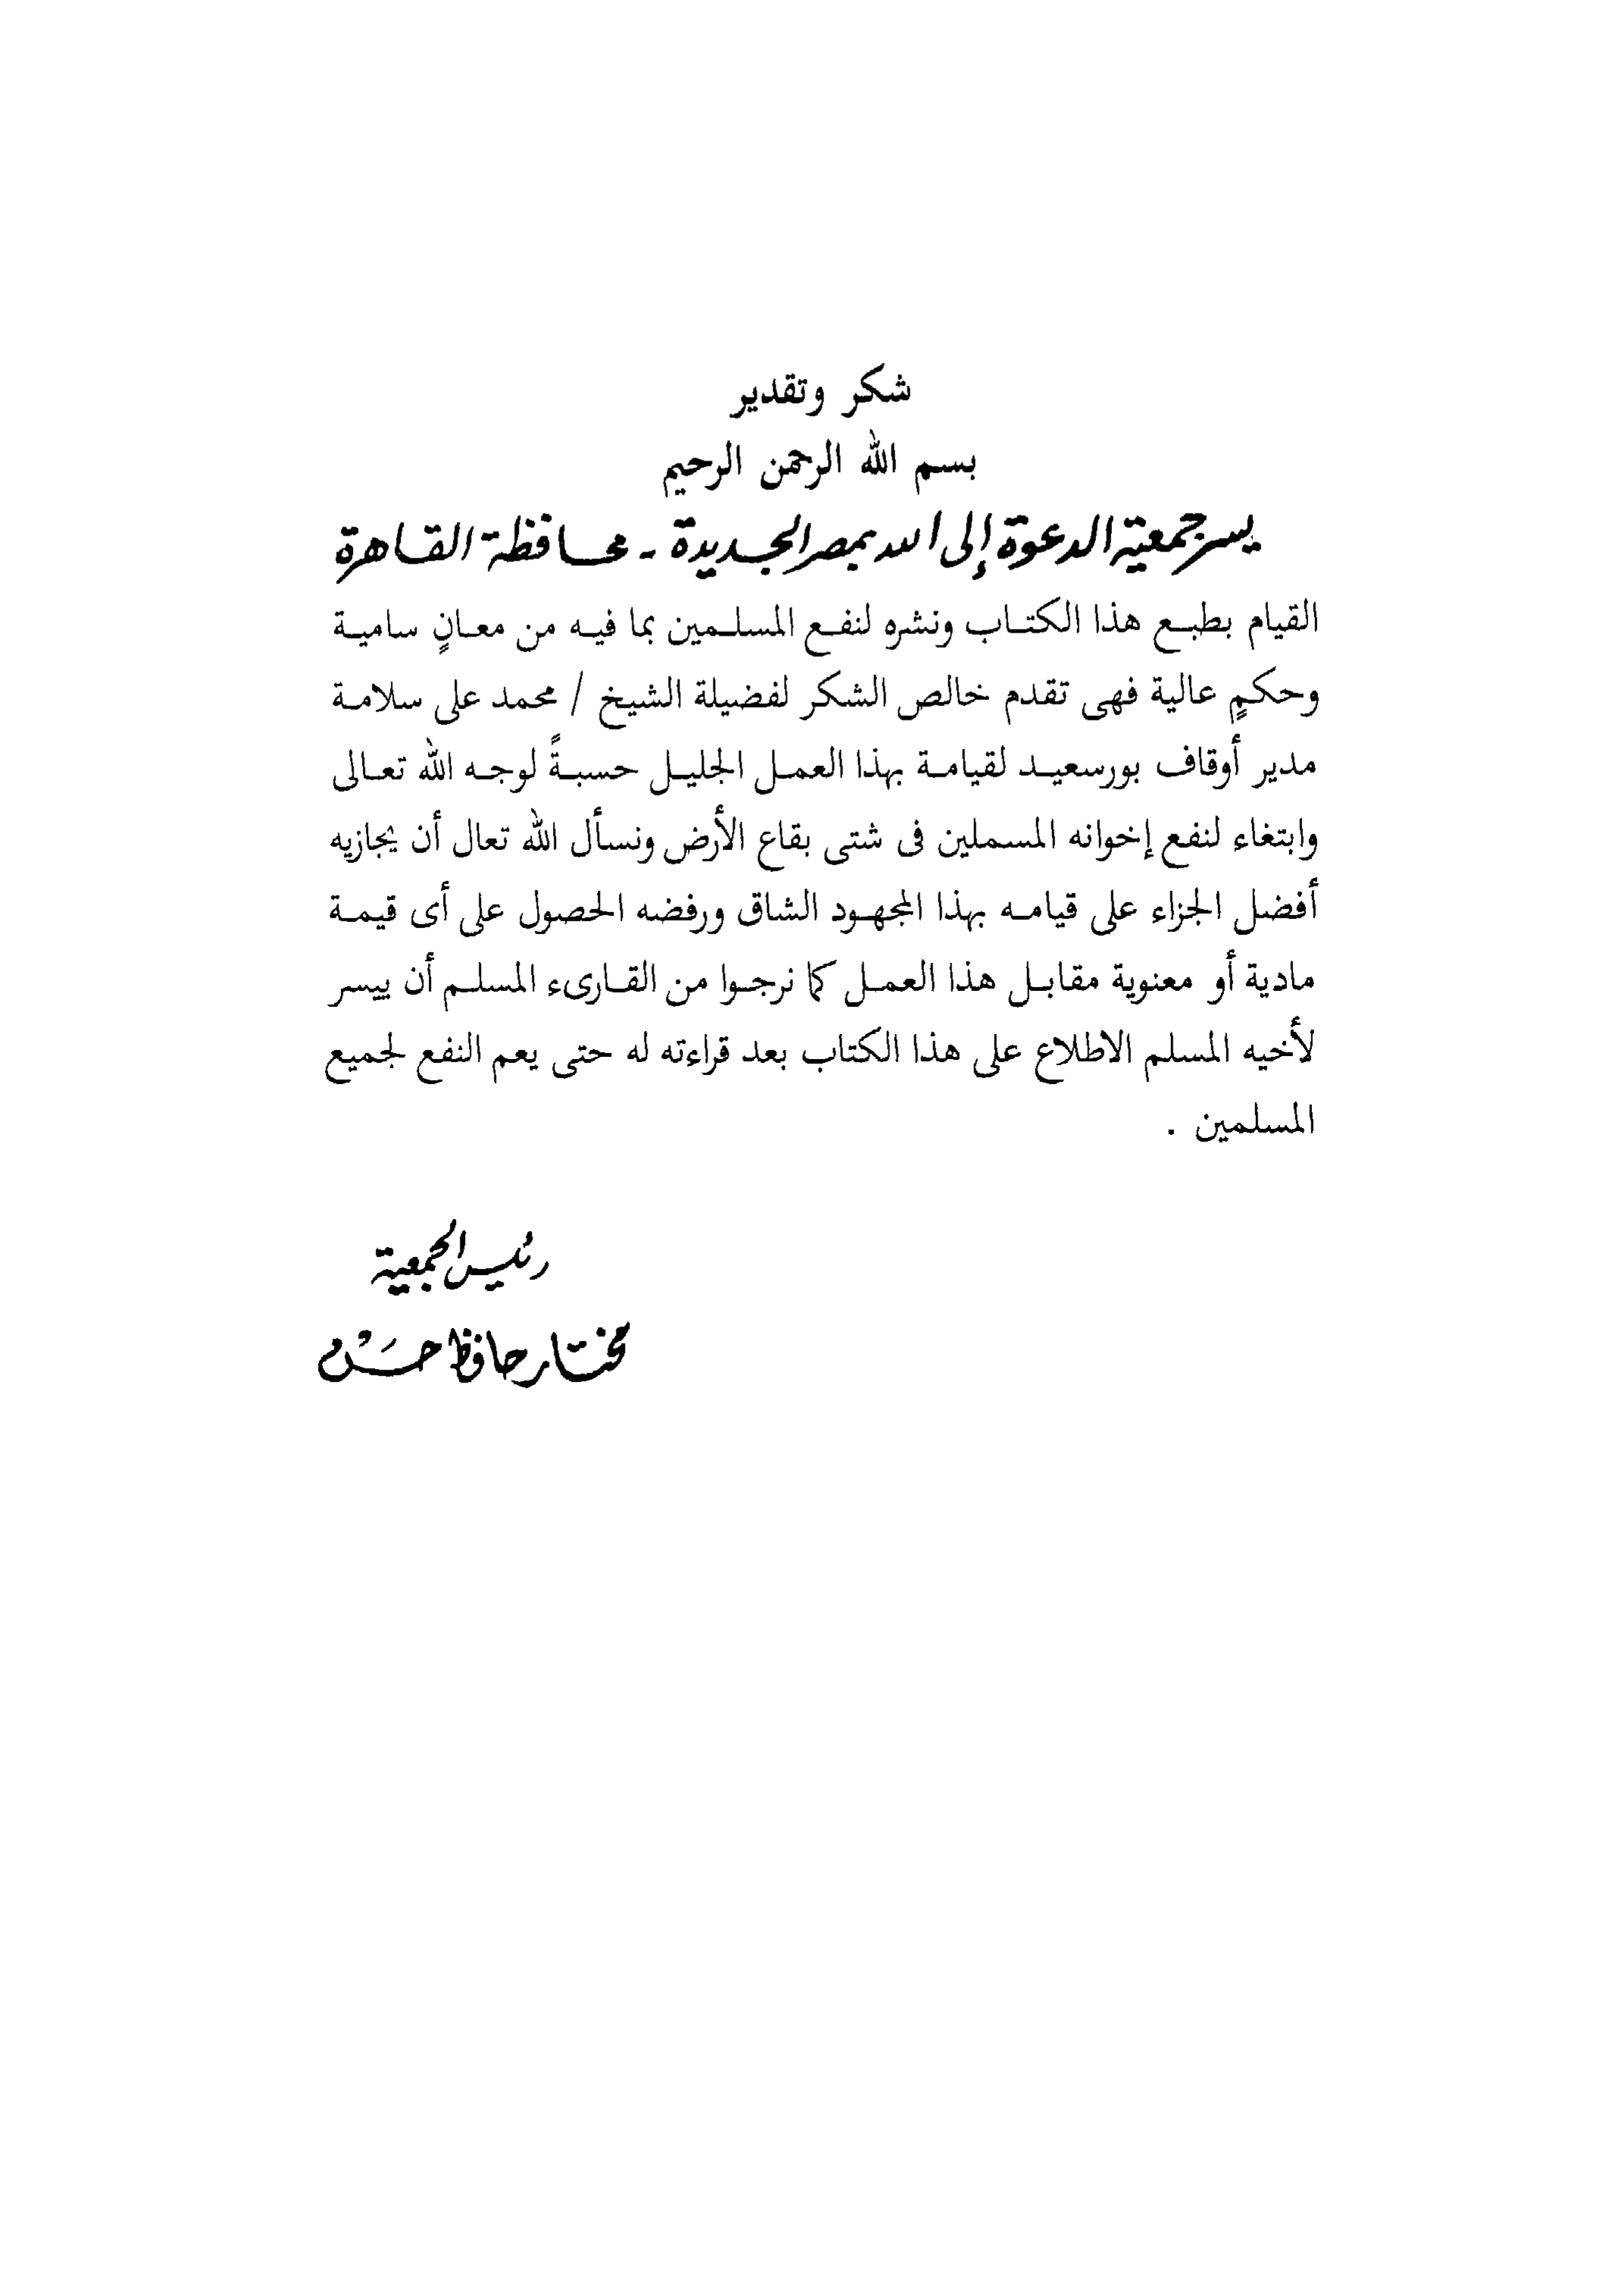 شكر وتقدير
بسم الله الرحمن الرحيم
يسر جمعية الدعوة إلى الله بمصر الجديدة - محافظة القاهرة
القيام بطبع هذا الكتاب ونشره لنفع المسلمين بما فيه من معانٍ سامية
وحكمٍ عالية فهى تقدم خالص الشكر لفضيلة الشيخ / محمد على سلامة
مدير أوقاف بورسعيد لقيامة بهذا العمل الجليل حسبةً لوجه الله تعالى
وابتغاء لنفع إخوانه المسملين فى شتى بقاع الأرض ونسأل الله تعال أن يجازيه
أفضل الجزاء على قيامه بهذا المجهود الشاق ورفضه الحصول على أى قيمة
مادية أو معنوية مقابل هذا العمل كما نرجوا من القارىء المسلم أن ييسر
لأخيه المسلم الاطلاع على هذا الكتاب بعد قراءته له حتى يعم النفع لجميع
المسلمين .
رئيس الجمعية
مختار حافظ حسن